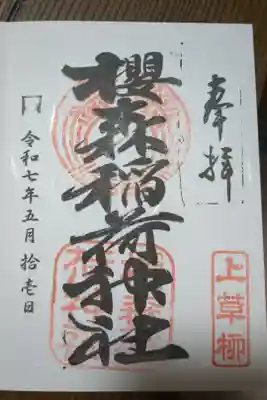 奉拝
櫻森稲荷神社
令和七年五月拾壱日
上草柳